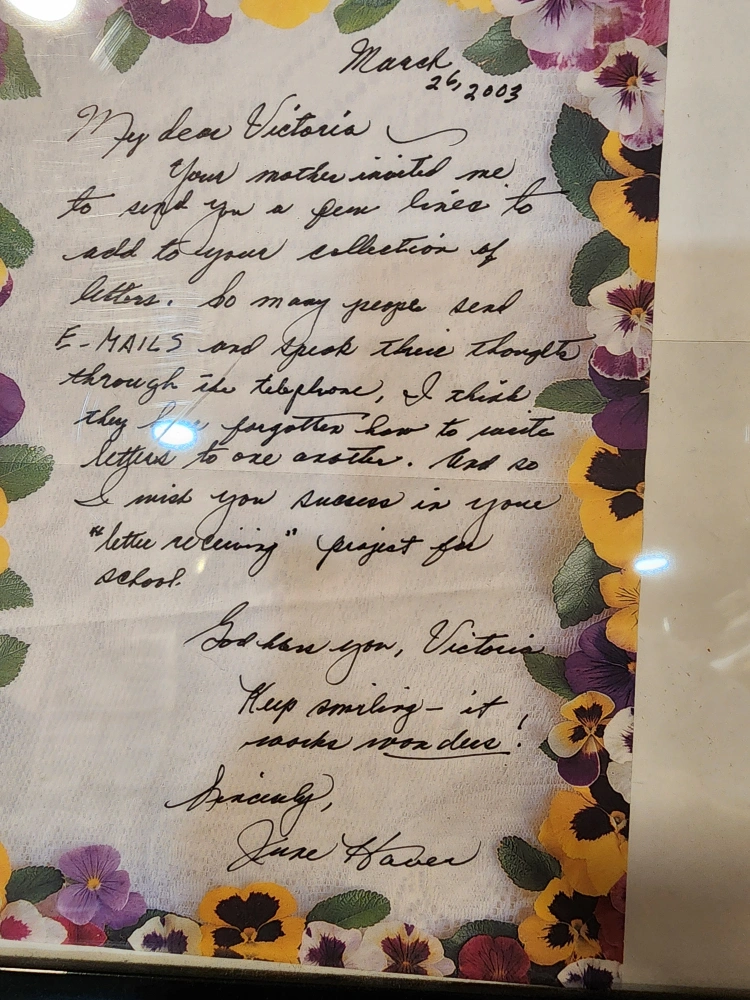 March
26, 2003
My dear Victoria
Your mother invited me
to send you a few lines to
add to your collection of
letters. So many people send
E-MAILS and speak their thoughts
through the telephone, I think
they have forgotten how to write
letters to one another. And so
I wish you success in your
"letter receiving" project for
school.
God bless you, Victoria
Keep smiling - it
works wonders!
Sincerely,
June Haver